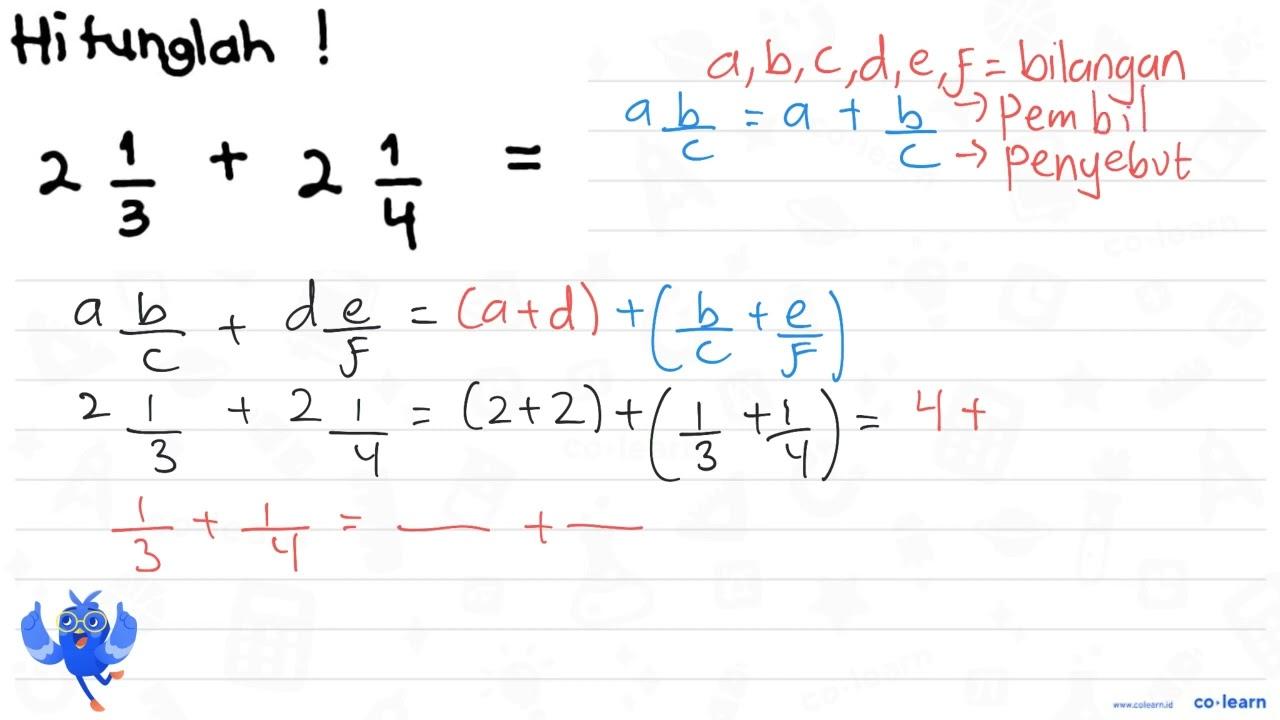 Hitunglah !
2 1/3 + 2 1/4 =
a, b, c, d, e, f = bilangan
a b/c = a + b/c → Pembil
→ Penyebut
a b/c + d e/f = (a + d) + (b/c + e/f)
2 1/3 + 2 1/4 = (2 + 2) + (1/3 + 1/4) = 4 +
1/3 + 1/4 = — + —
www.colearn.id co·learn